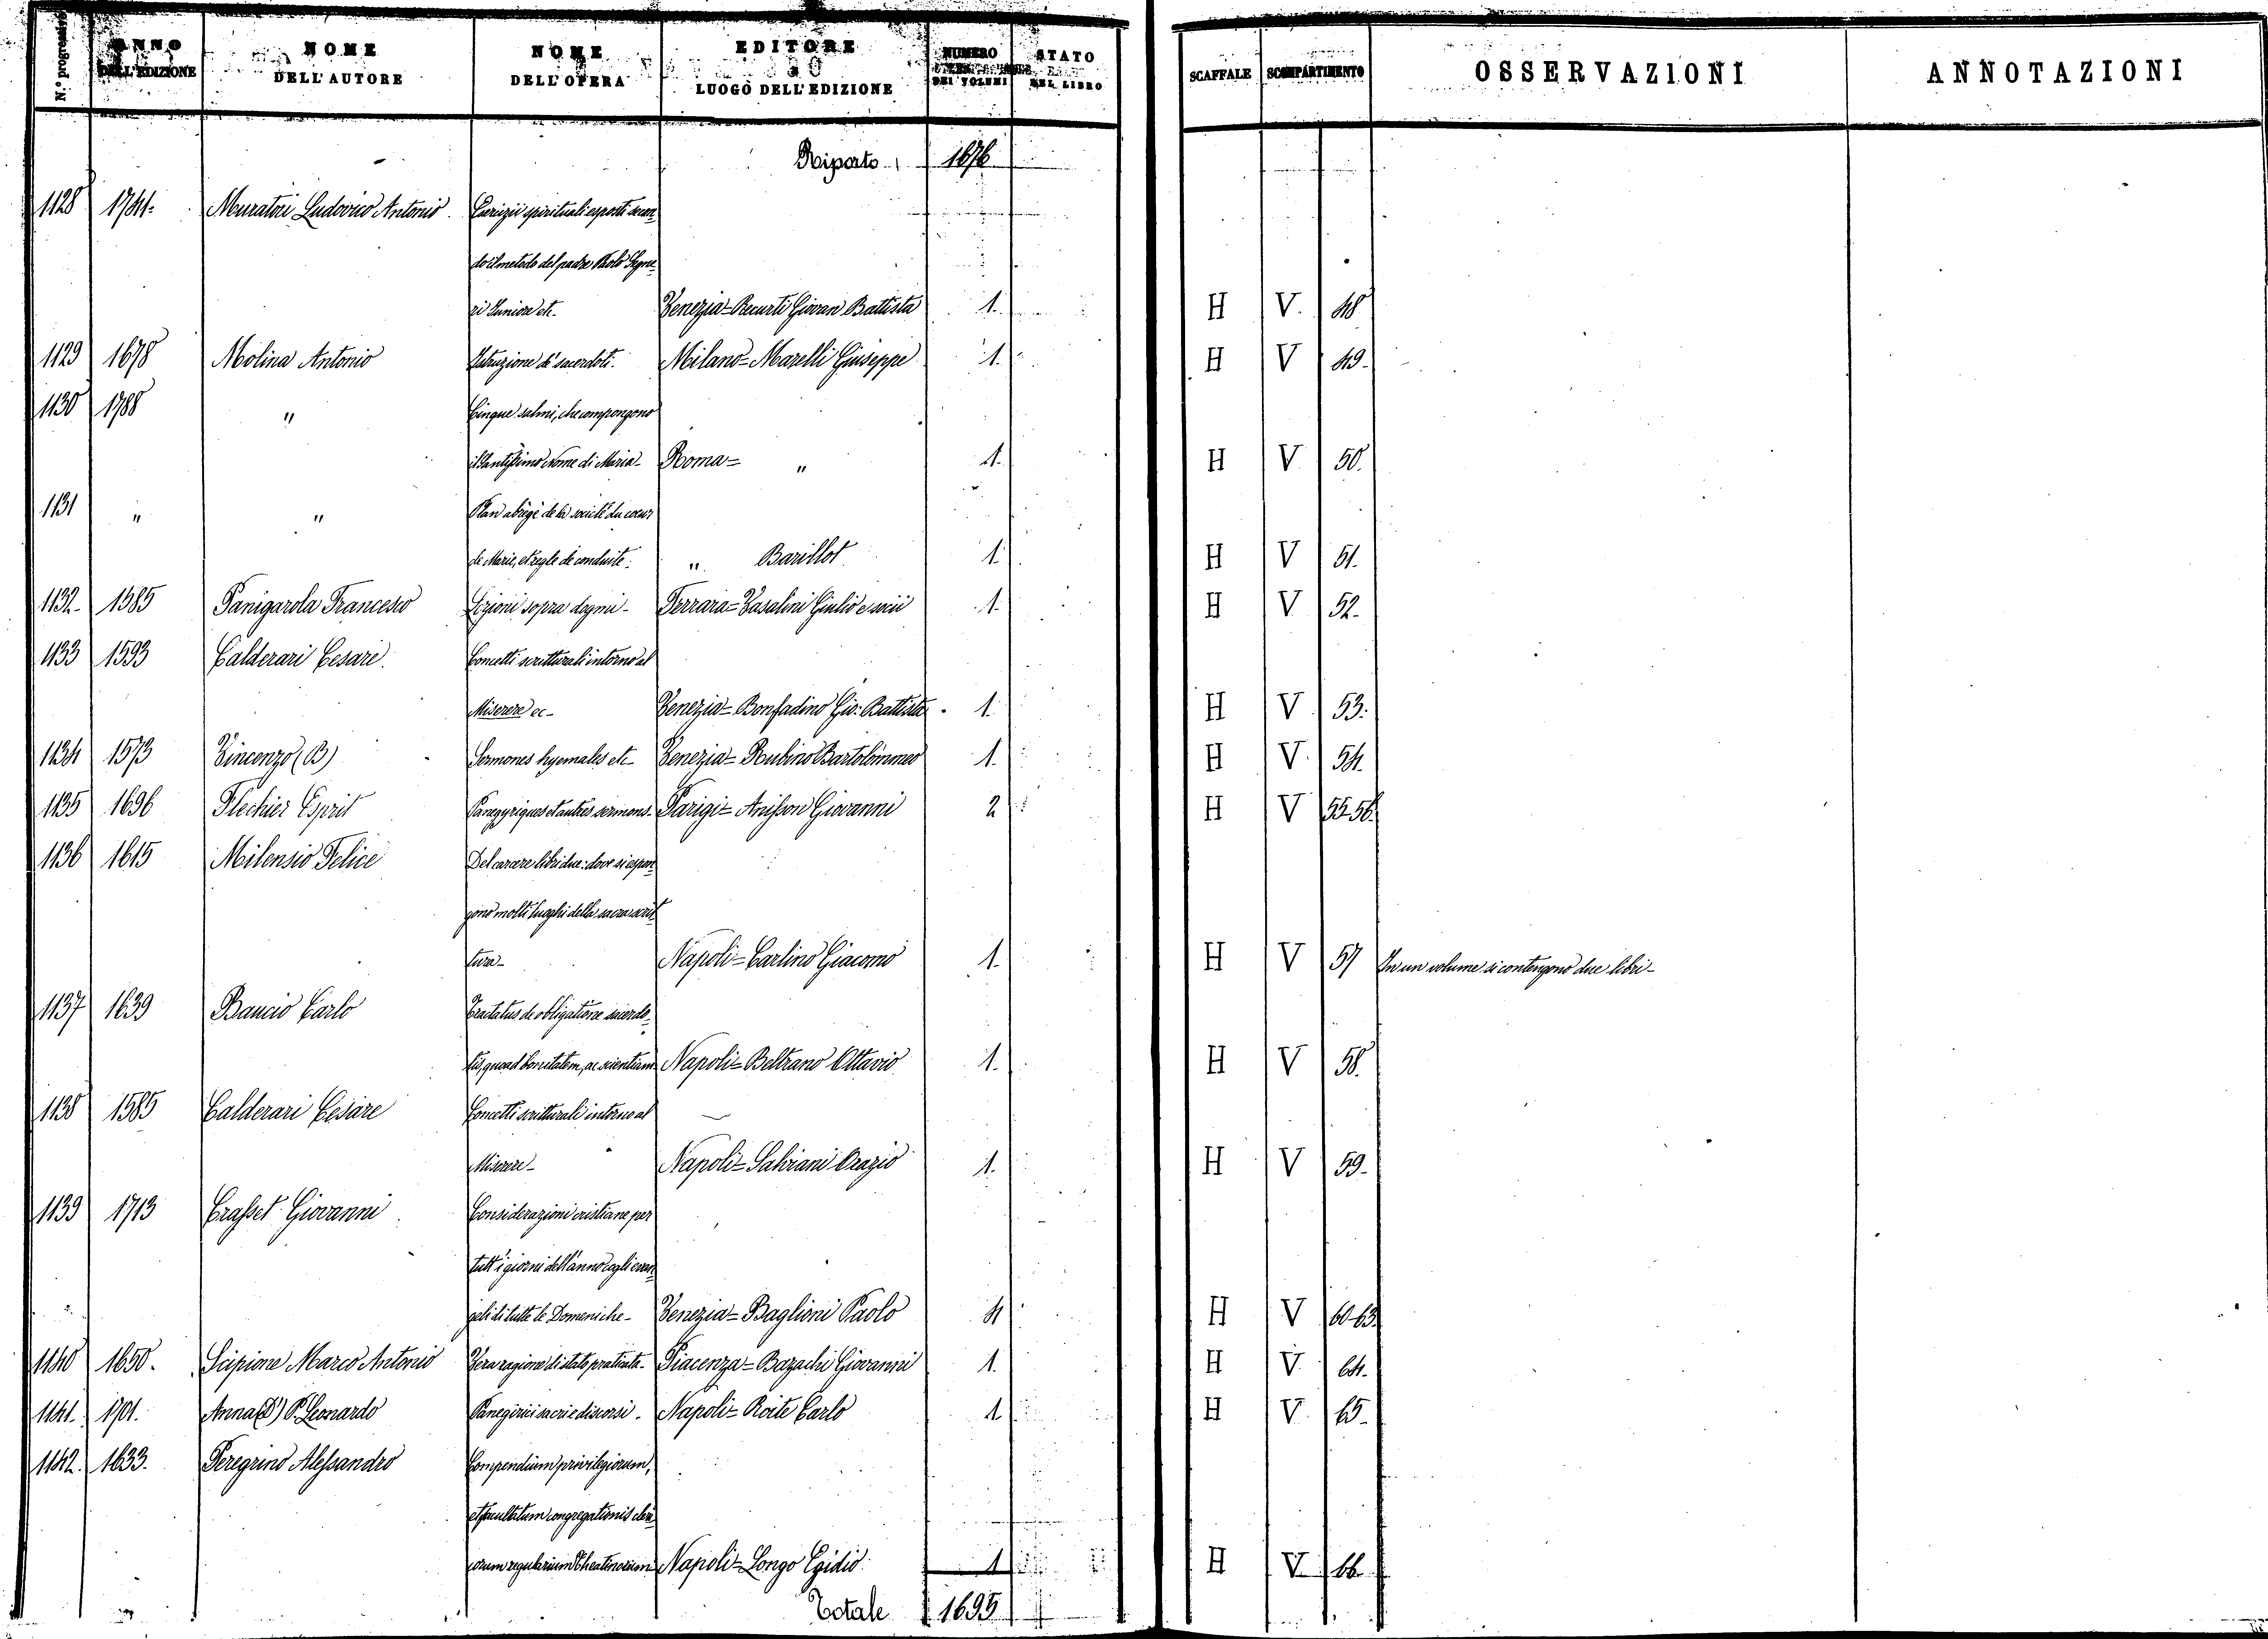 N.º progressivo ANNO DELL'EDIZIONE NOME DELL'AUTORE NOME DELL'OPERA EDITORE LUOGO DELL'EDIZIONE NUMERO DEI VOLUMI STATO DEL LIBRO SCAFFALE SCOMPARTIMENTO OSSERVAZIONI ANNOTAZIONI
Riporto 1676
1128 1741. Muratori Ludovico Antonio. Esercizii spirituali esposti secon
do il metodo del padre Paolo Segne
ri Juniore etc. Venezia = Recurti Giovan Battista 1. H V. 48
1129 1678 Molina Antonio Istruzione de' sacerdoti. Milano = Marelli Giuseppe 1. H V 49.
1130 1788 " Cinque salmi, che compongono
il Santissimo Nome di Maria - Roma = " 1. H V 50.
1131 " " Plan abrégé de la société du coeur
de Marie, et regle de conduite. " Barillot 1. H V 51.
1132. 1585 Panigarola Francesco Lezioni sopra dogmi - Ferrara = Vasalini Giulio e socii 1. H V 52.
1133 1593 Calderari Cesare. Concetti scritturali intorno al
Miserere ec - Venezia = Bonfadino Gio: Battista. 1. H V 53.
1134 1573 Vincenzo (B) Sermones hyemales etc - Venezia = Rubino Bartolommeo 1. H V. 54.
1135 1696 Flechier Esprit Panegyriques et autres sermons - Parigi = Anisson Giovanni 2 H V 55-56.
1136 1615 Milensio Felice Del carcere libri due: dove si espon
gono molti luoghi della sacra scrit
tura - Napoli = Carlino Giacomo 1. H V 57 In un volume si contengono due libri -
1137 1639 Baucio Carlo Tractatus de obligatione sacerdo
tis, quoad bonitatem, ac scientiam Napoli = Beltrano Ottavio 1. H V 58.
1138 1585 Calderari Cesare Concetti scritturali intorno al
Miserere - Napoli = Salviani Orazio 1. H V 59.
1139 1713 Crasset Giovanni Considerazioni cristiane per
tutt'i giorni dell'anno cogli evan
geli di tutte le Domeniche - Venezia = Baglioni Paolo 4 H V 60-63.
1140 1650. Scipione Marco Antonio Vera ragione di stato praticata - Piacenza = Bazachi Giovanni 1. H V 64.
1141. 1701. Anna (D') P. Leonardo Panegirici sacri e discorsi. Napoli = Roite Carlo 1. H V. 65.
1142. 1633. Peregrino Alessandro Compendium privilegiorum,
et facultatum congregationis cleri
corum regularium Theatinorum Napoli = Longo Egidio. 1 H V 66
Totale 1695